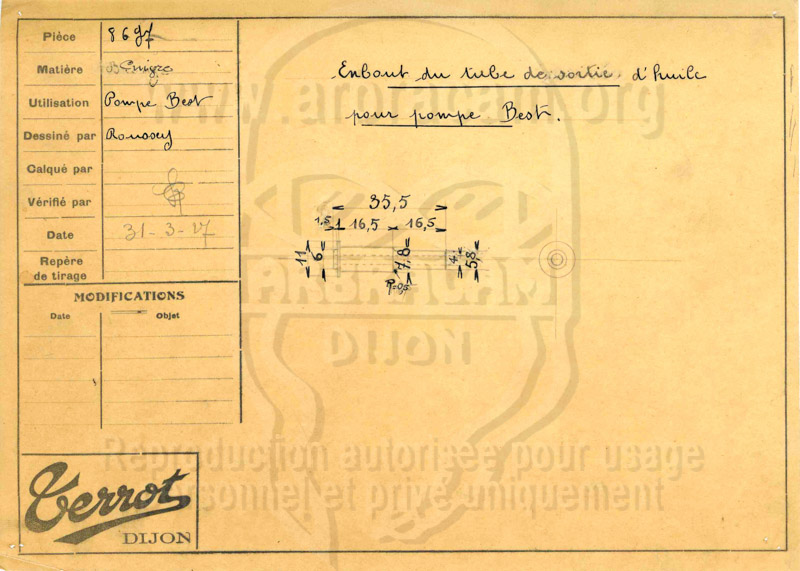 Pièce 8697
Matière
Utilisation Pompe Best
Dessiné par Roussey
Calqué par
Vérifié par
Date 31-3-27
Repère
de tirage
MODIFICATIONS
Date Objet
Terrot
DIJON
Enbout du tube de sortie d'huile
pour pompe Best.
35,5
1,5 16,5 16,5
11 6 7,8 4 5,8
R=0,5
www.arbracam.org
ARBRACAM
DIJON
Reproduction autorisée pour usage
personnel et privé uniquement